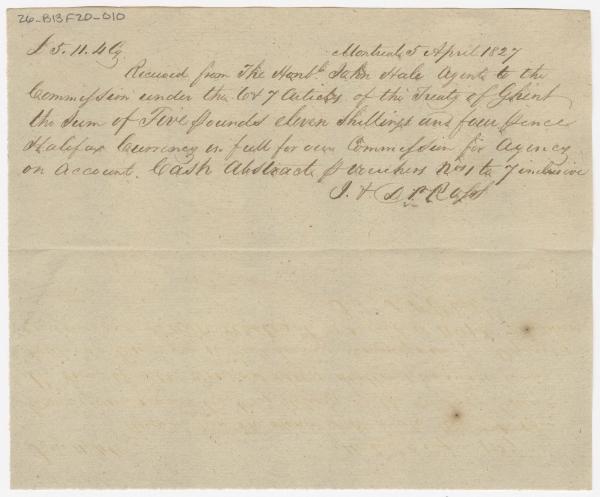 26-B13F20-010
£5.11.4 Cy Montreal 5 April 1827
Received from The Honble John Hale Agent to the
Commission under the 6 & 7 Articles of the Treaty of Ghent
the sum of Five pounds eleven shillings and four pence
Halifax Currency in full for our Commission for Agency
on Account. Cash Abstract & Vouchers Nos 1 to 7 inclusive
J. & D. Ross